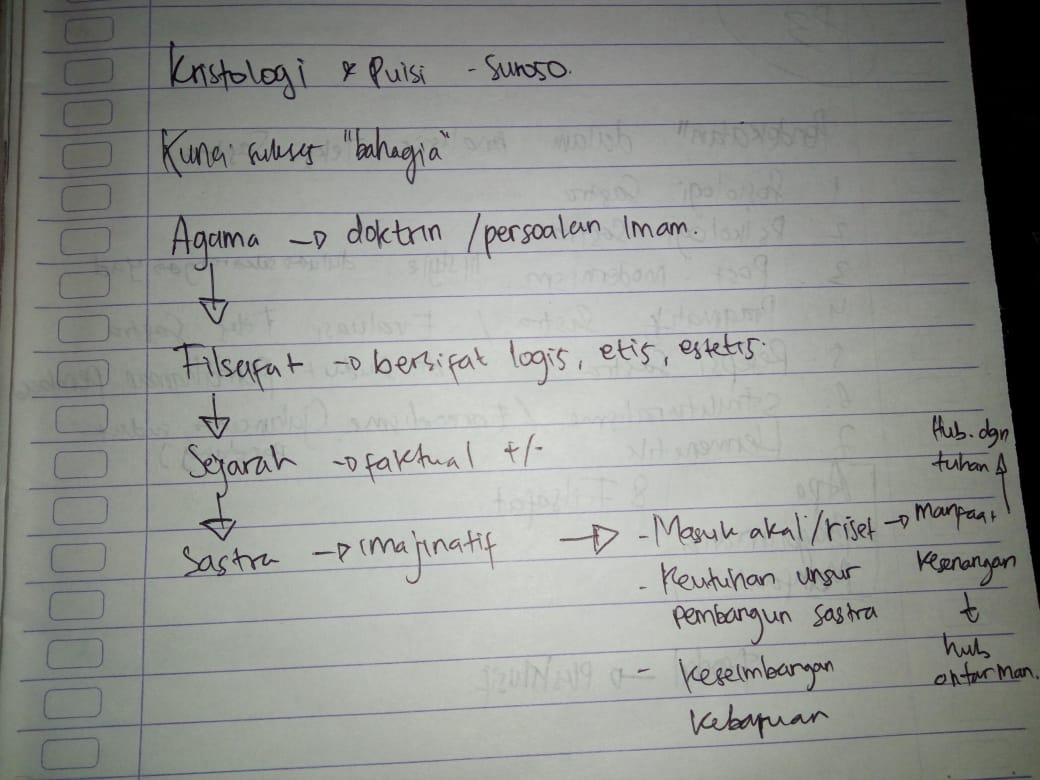 Kristologi & Puisi - Suroso.
Kunci sukses "bahagia"
Agama → doktrin / persoalan Imam.
↓
Filsafat → bersifat logis, etis, estetis.
↓
Sejarah → faktual +/-
↓
Sastra → imajinatif ⇒ - Masuk akal/riset → manfaat
↑
Hub. dgn
tuhan
- Keutuhan unsur
pembangun sastra
- Keseimbangan
Kebaruan
Kesenangan
t
hub
antar man.